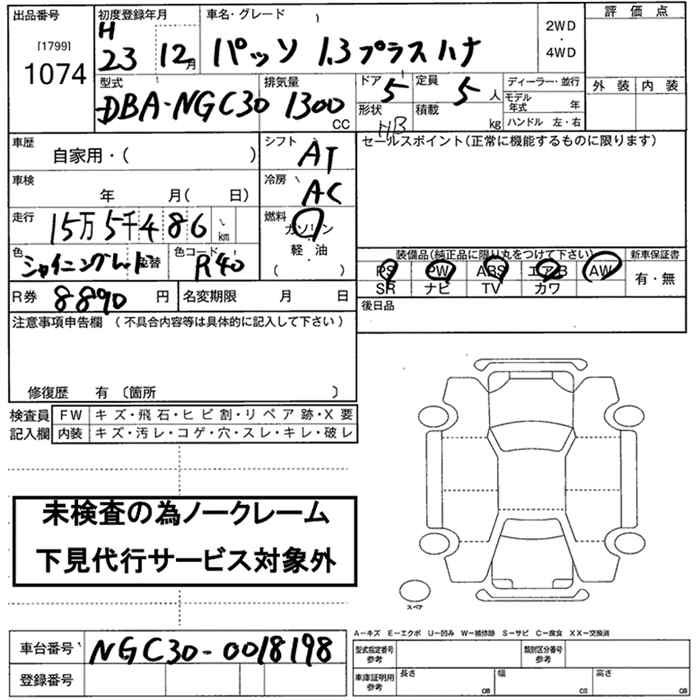 出品番号
[1799]
1074
初度登録年月
H
23 12月
車名・グレード
パッソ 1.3プラスハナ
2WD
・
4WD
評価点
外装 内装
型式
DBA-NGC30
排気量
1300
CC
ドア 5
形状 HB
定員 5 人
積載 kg
ディーラー・並行
モデル
年式 年
ハンドル 左・右
車歴
自家用・( )
シフト
AT
セールスポイント(正常に機能するものに限ります)
車検
年 月( 日)
冷房
AC
走行
15万5千486 km
燃料
ガソリン
軽油
( )
色
シャイニングレッド
色替
色コード
R40
装備品(純正品に限り丸をつけて下さい)
PS PW ABS エアB AW
SR ナビ TV カワ
新車保証書
有・無
R券 8890 円
名変期限 月 日
後日品
注意事項申告欄 (不具合内容等は具体的に記入して下さい)
修復歴 有 〔箇所 〕
検査員
記入欄
FW キズ・飛石・ヒビ割・リペア跡・X要
内装 キズ・汚レ・コゲ・穴・スレ・キレ・破レ
未検査の為ノークレーム
下見代行サービス対象外
スペア
A－キズ E－エクボ U－凹み W－補修跡 S－サビ C－腐食 XX－交換済
車台番号 NGC30-0018198
登録番号
型式指定番号
参考
類別区分番号
参考
車庫証明用
参考
長さ cm
幅 cm
高さ cm